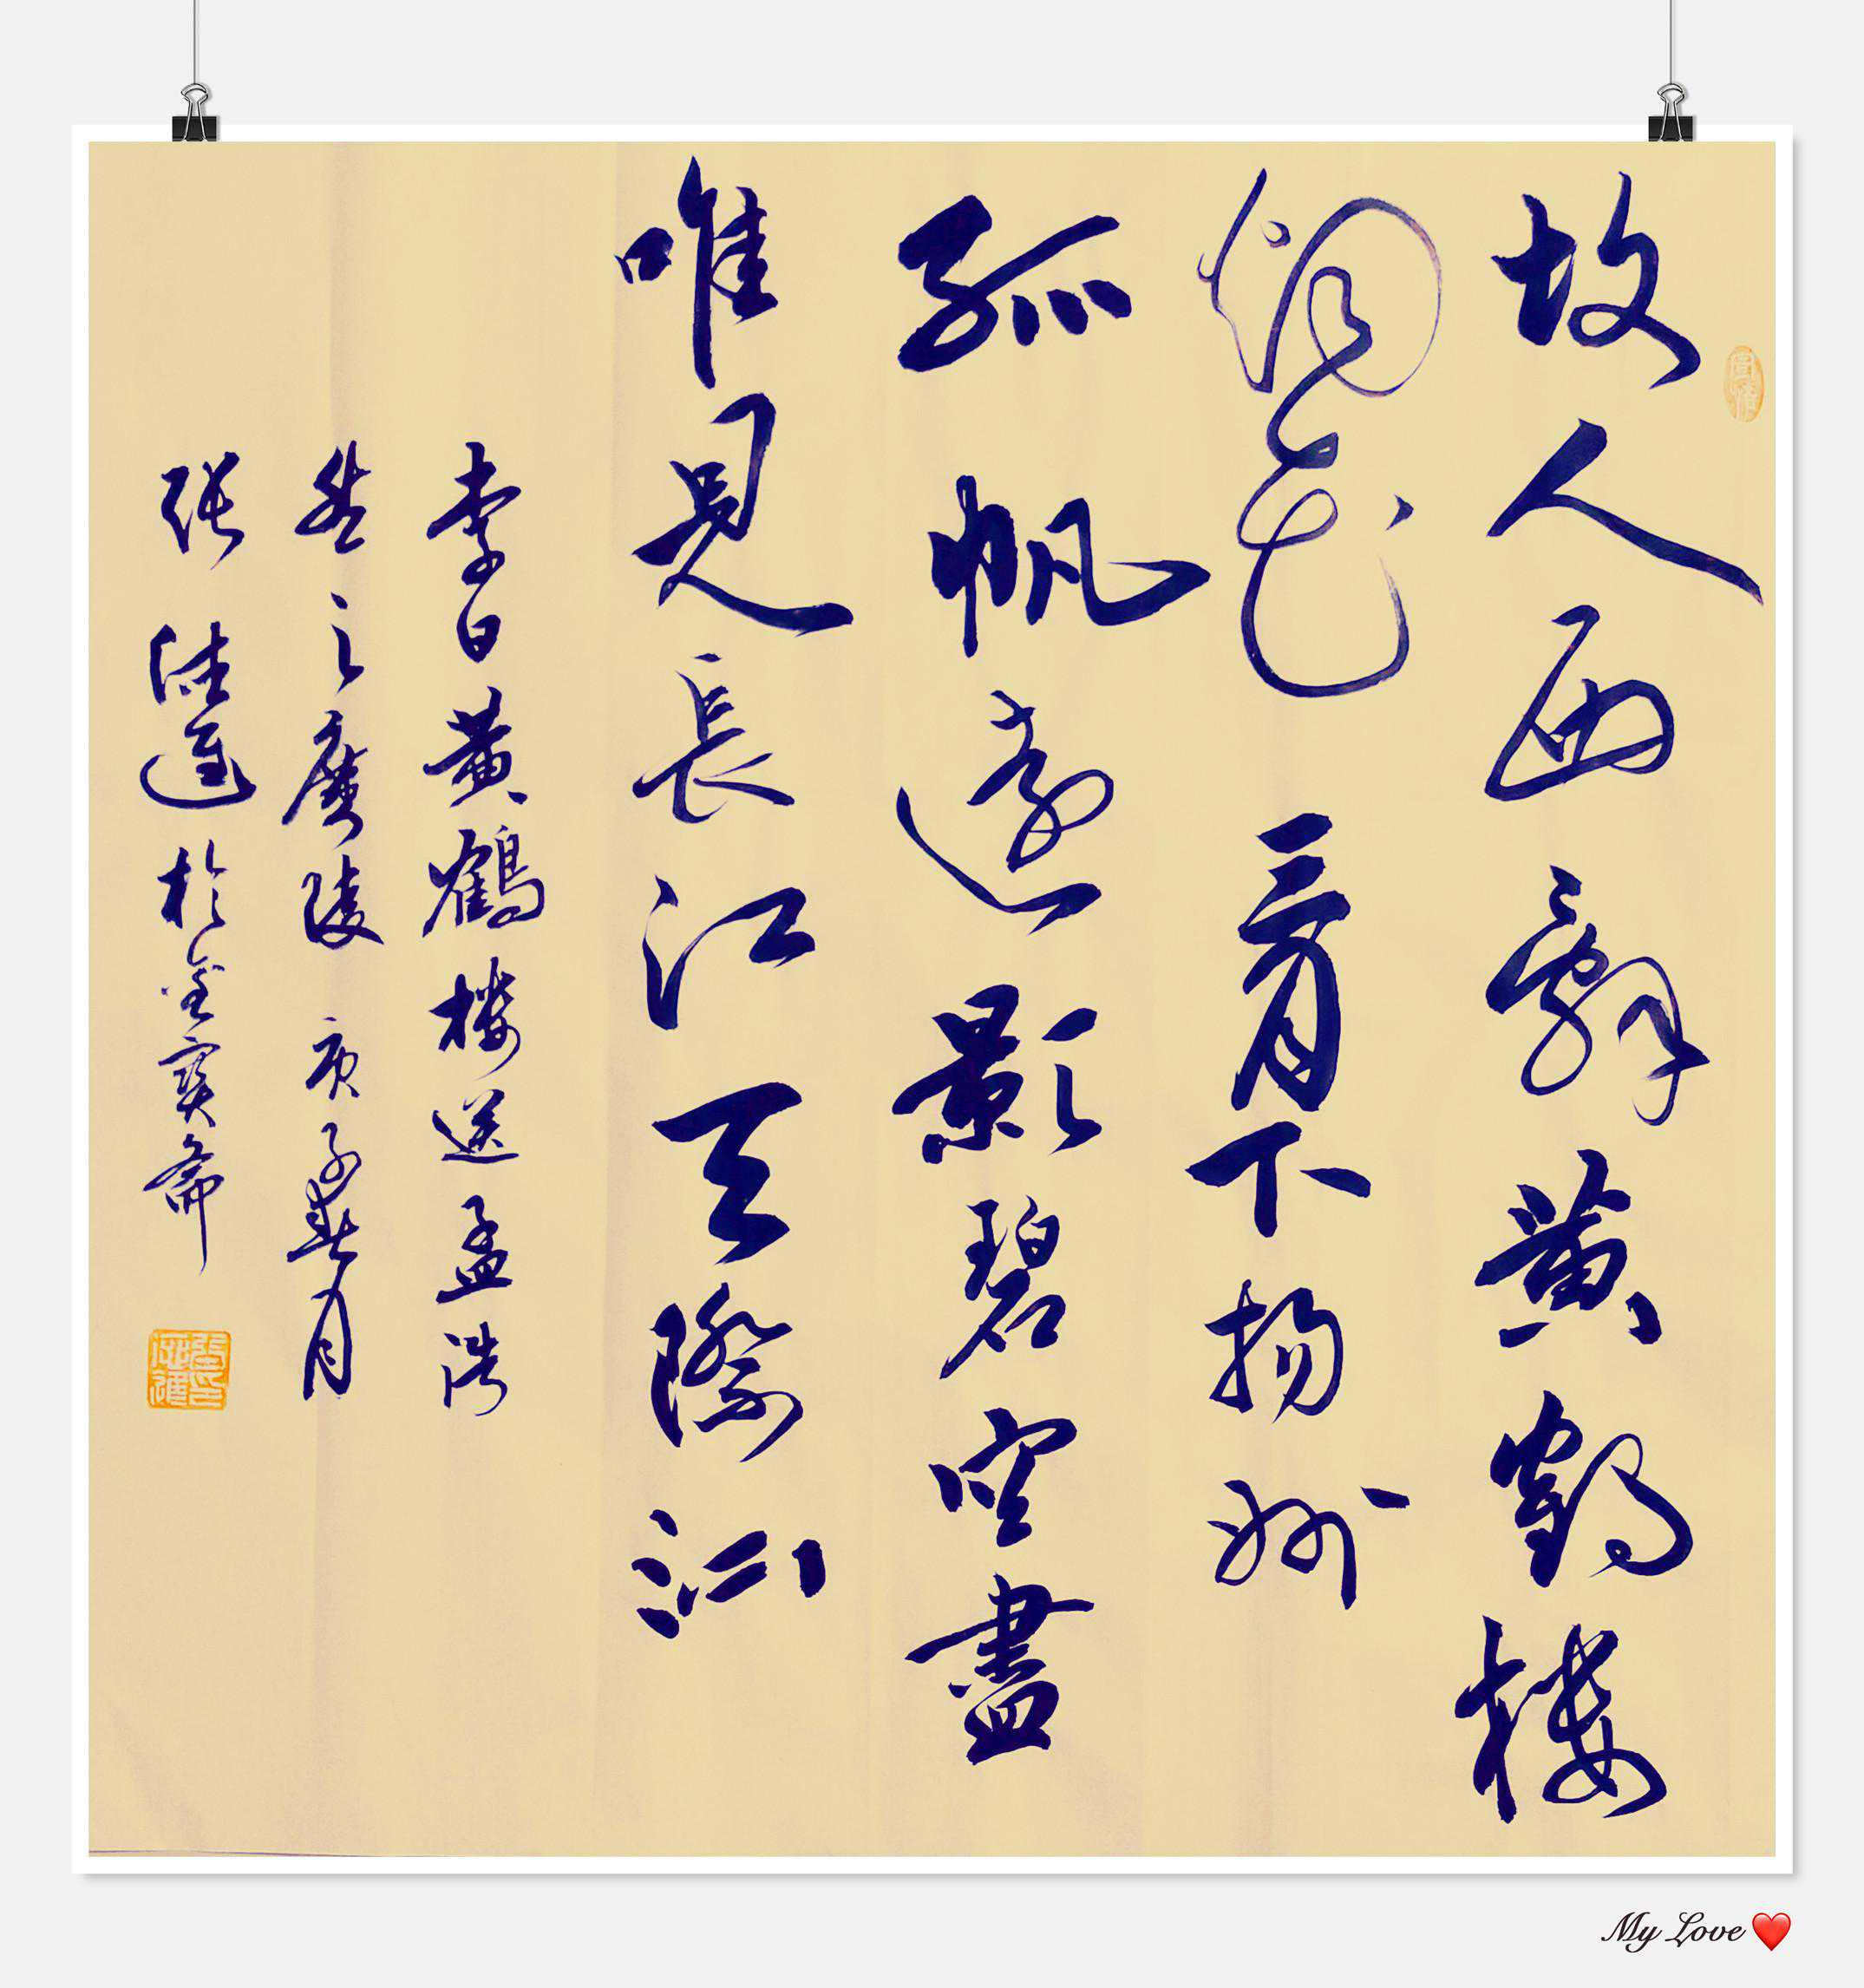 故人西辭黄鶴樓
烟花三月下揚州
孤帆遠影碧空盡
唯見長江天際流
李白黄鶴樓送孟浩
然之廣陵 庚子春月
張 進於金寶齋
My Love